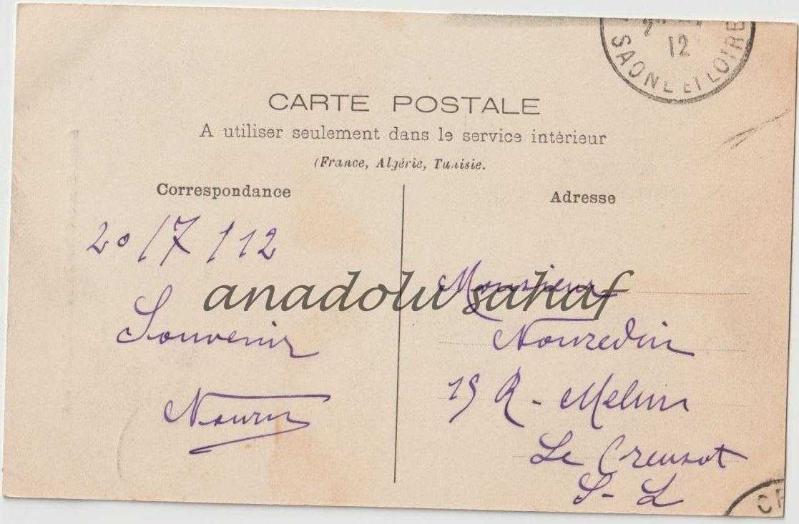 12
SAONE ET LOIRE
CARTE POSTALE
A utiliser seulement dans le service intérieur
(France, Algérie, Tunisie.
Correspondance
Adresse
20/7/12
Souvenir
Monsieur
Nouredin
19 R - Melun
Le Creusot
S-L
anadolu sahaf